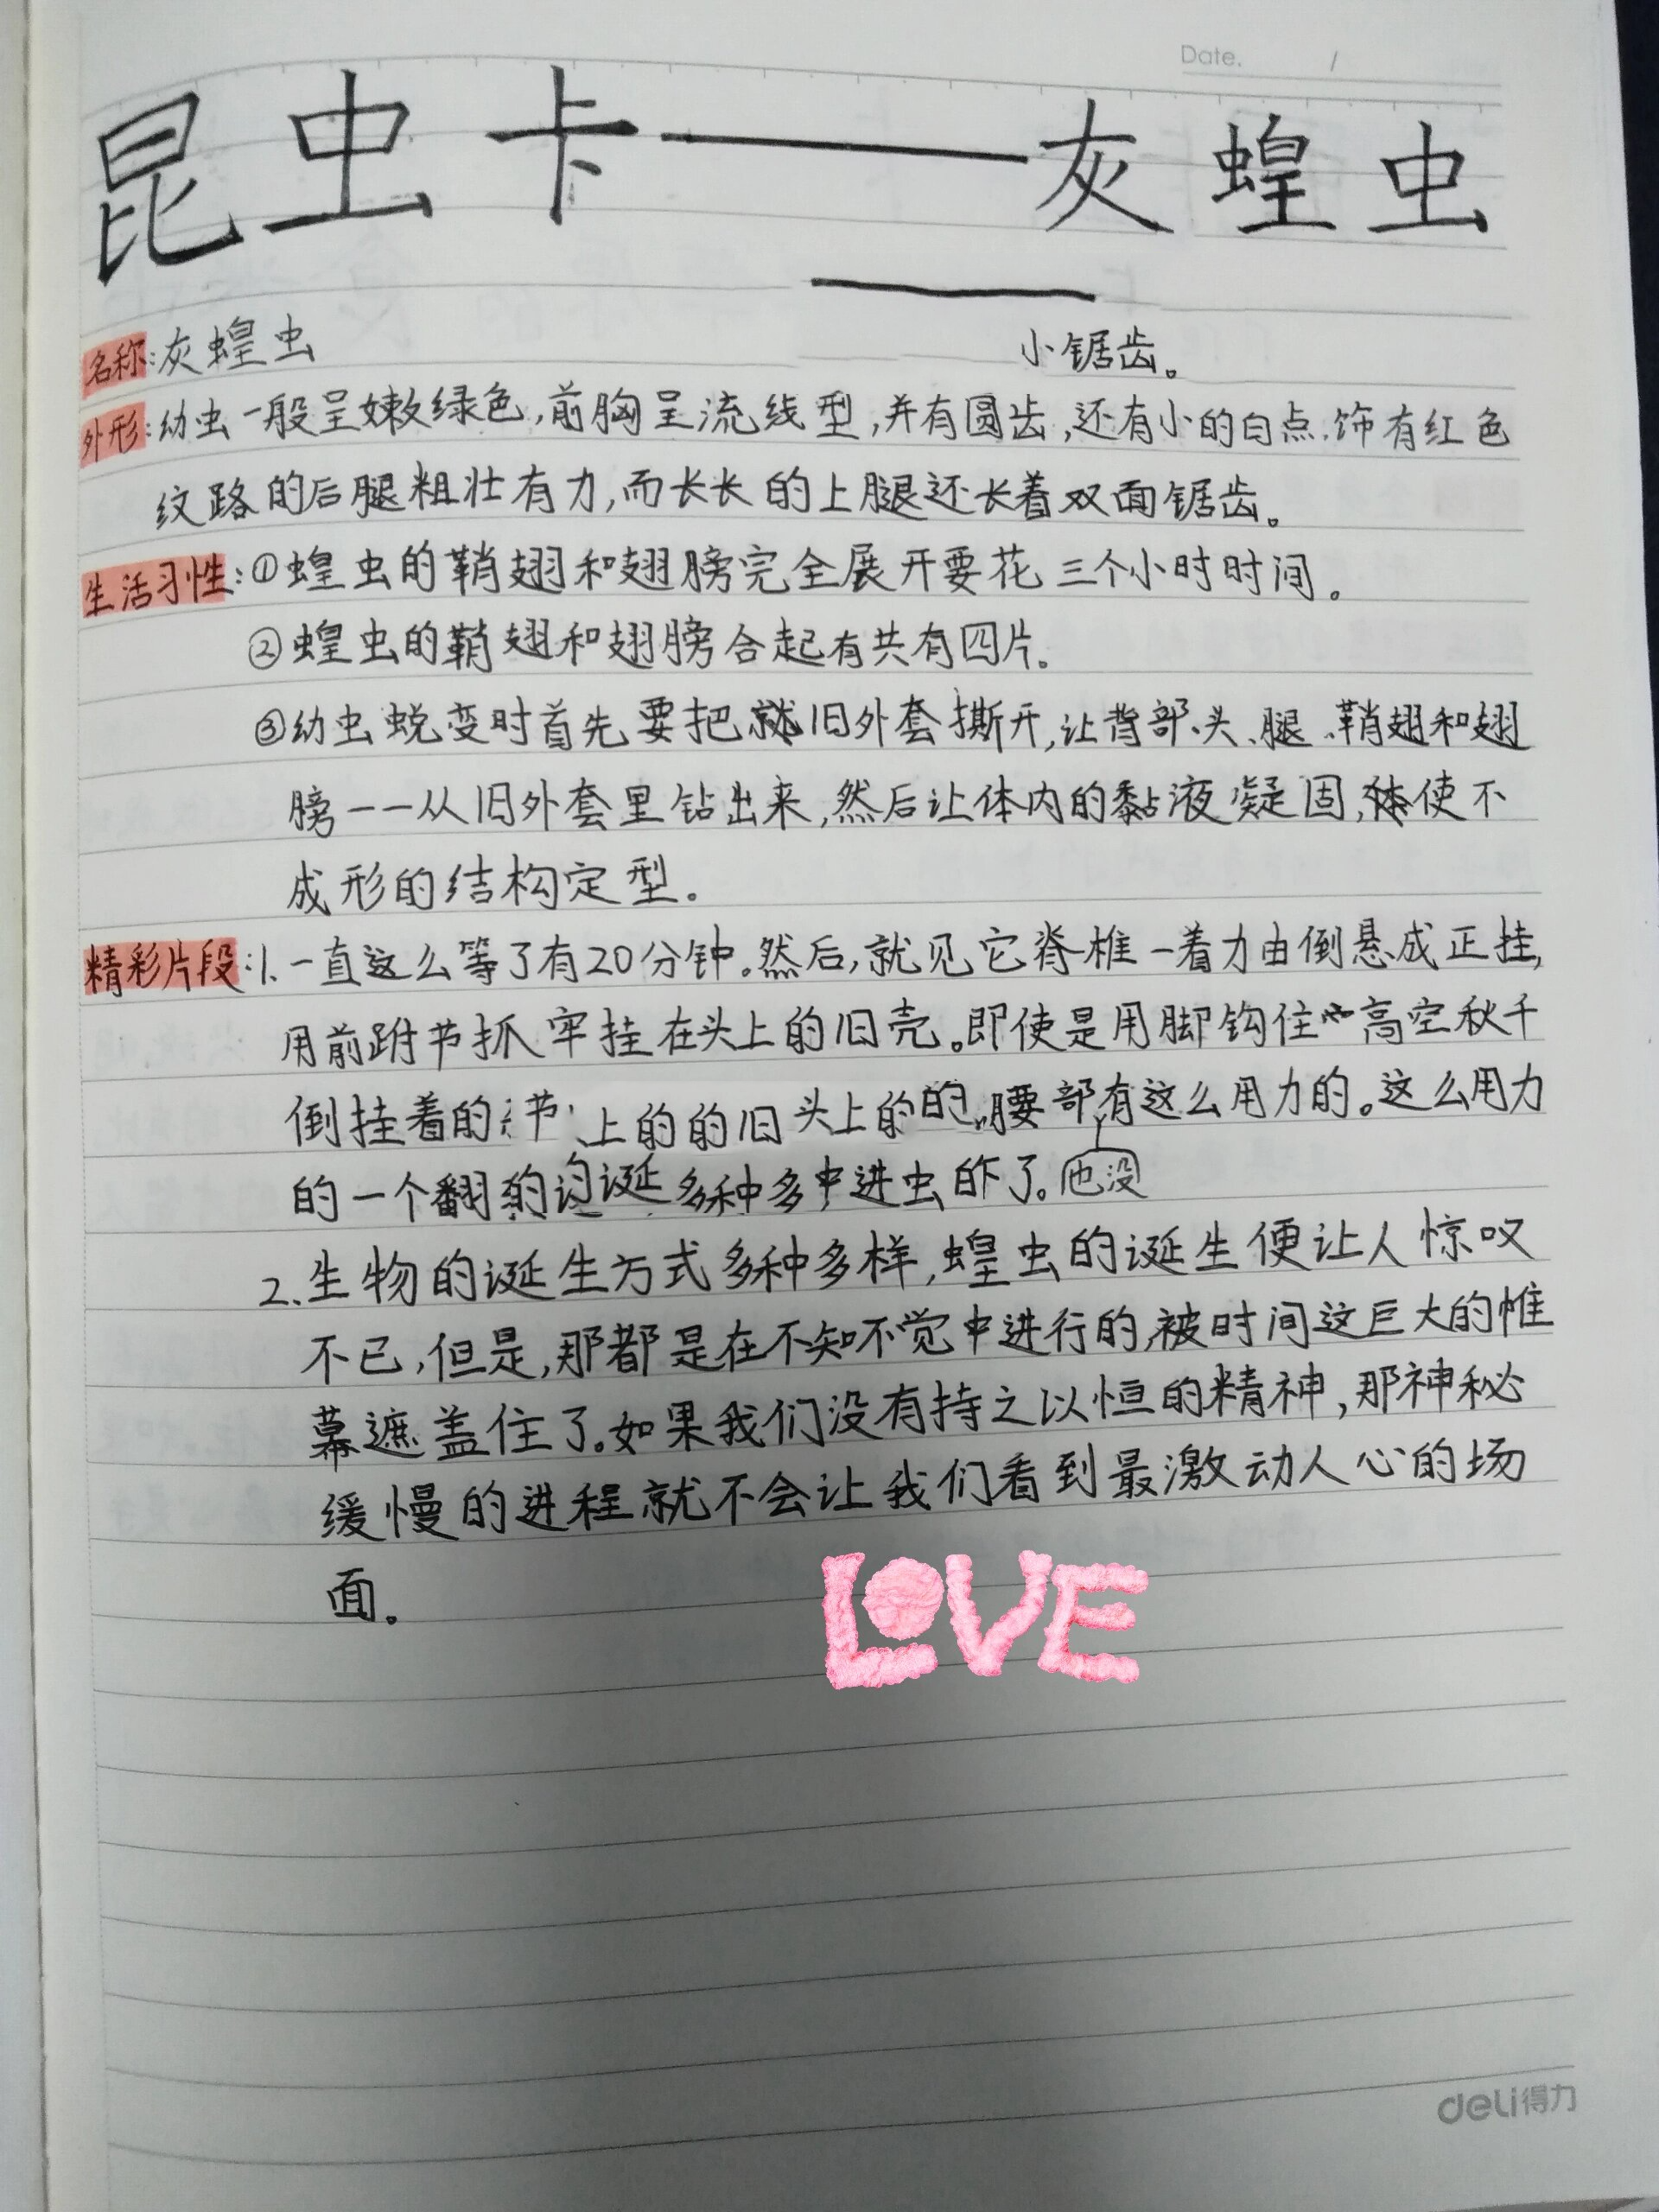 Date. /
昆虫卡——灰蝗虫
名称:灰蝗虫
小锯齿。
外形:幼虫一般呈嫩绿色,前胸呈流线型,并有圆齿,还有小的白点.饰有红色
纹路的后腿粗壮有力,而长长的上腿还长着双面锯齿。
生活习性:①蝗虫的鞘翅和翅膀完全展开要花三个小时时间。
②蝗虫的鞘翅和翅膀合起有共有四片。
③幼虫蜕变时首先要把旧外套撕开,让背部、头、腿、鞘翅和翅
膀——从旧外套里钻出来,然后让体内的黏液凝固,使不
成形的结构定型。
精彩片段:1.一直这么等了有20分钟。然后,就见它脊椎一着力由倒悬成正挂,
用前跗节抓牢挂在头上的旧壳。即使是用脚钩住高空秋千
倒挂着的 节 上的的旧头上的的,腰部有这么用力的。这么用力
的一个翻 的 诞多种多中进虫 了。也没
2.生物的诞生方式多种多样,蝗虫的诞生便让人惊叹
不已,但是,那都是在不知不觉中进行的,被时间这巨大的帷
幕遮盖住了。如果我们没有持之以恒的精神,那神秘
缓慢的进程就不会让我们看到最激动人心的场
面。
LOVE
deli得力